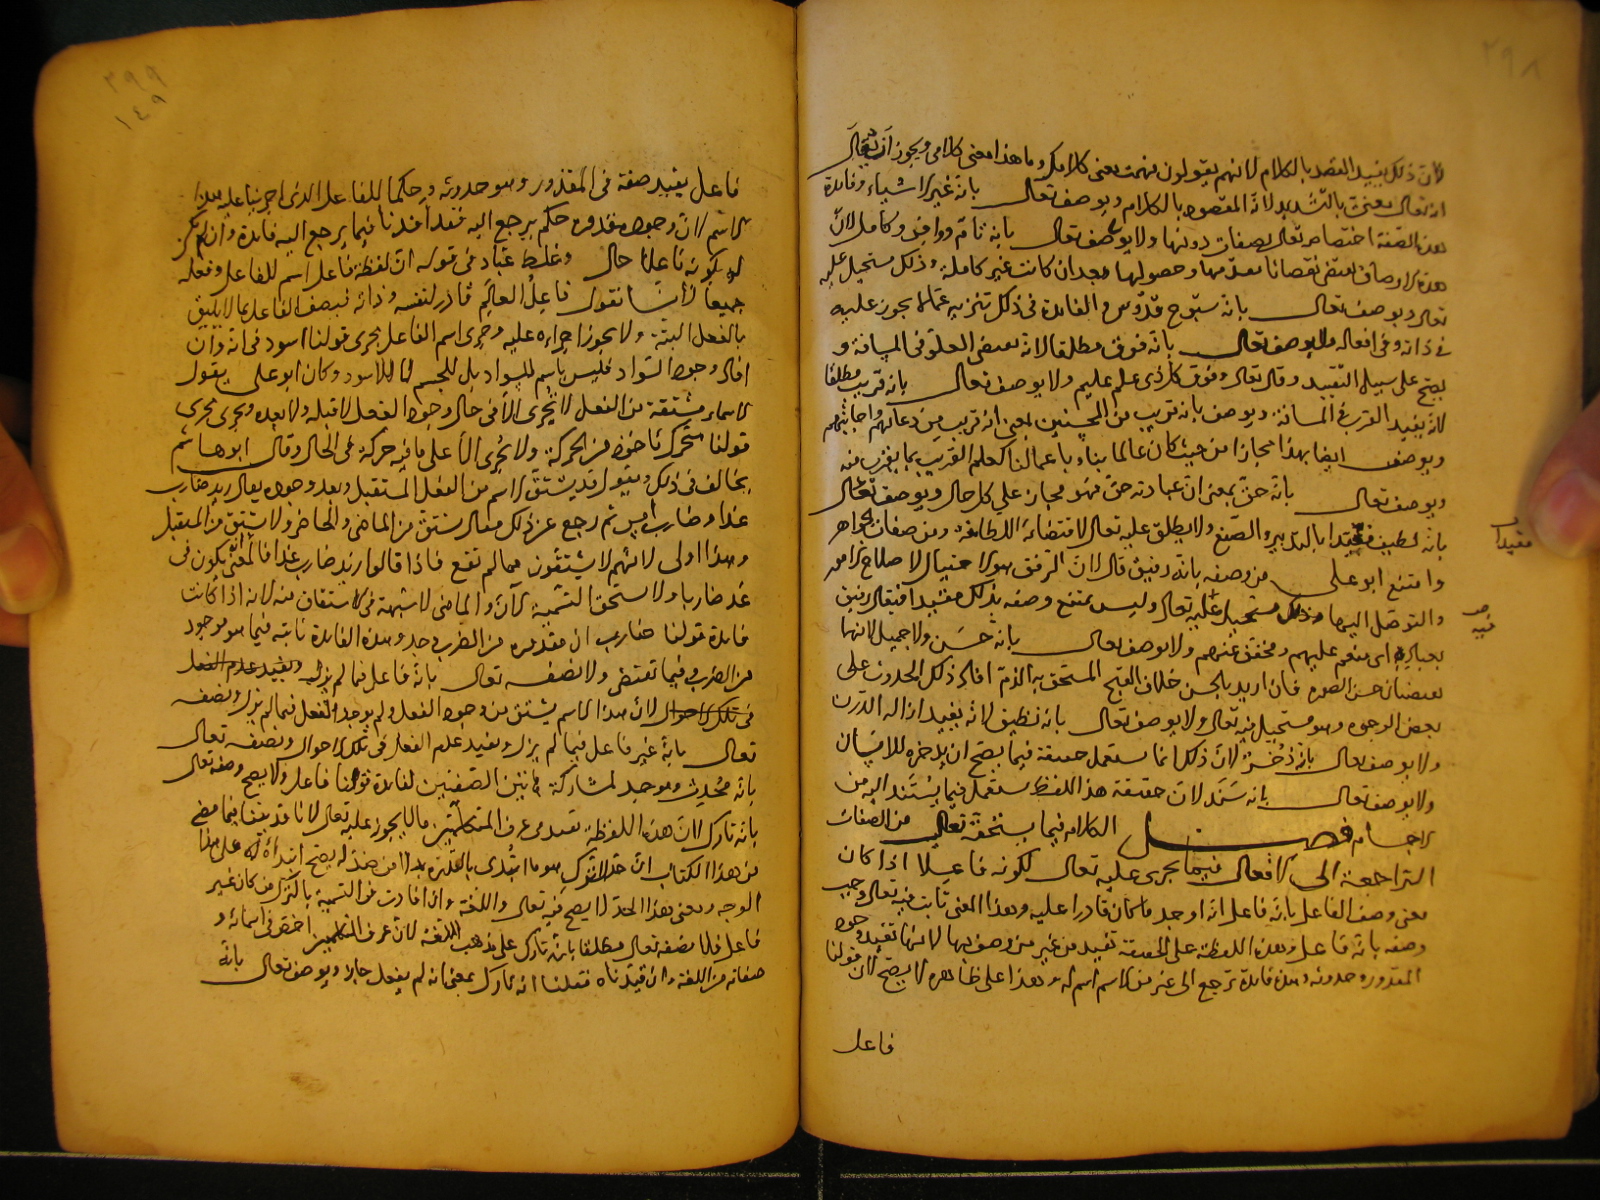 ٢٩٨
لأن ذلك يفيد القصد بالكلام لأنهم يقولون فهمت معنى كلامك وما هذا معنى كلامي ويجوز أن
انه تعالى معنى بالتشديد لانه المقصود بالكلام ويوصف تعالى بانه غير الاشياء وفائدة
هذه الصفة اختصاصه تعالى بصفات دونها ولا يوصف تعالى بانه تامّ ووافر وكامل لأنّ
هذه الاوصاف تقتضي نقصانا بعدمها وحصولها بعد ان كانت غير كاملة وذلك مستحيل عليه
تعالى ويوصف تعالى بانه سبّوح قدّوس والفائدة في ذلك تنزيهه عما لا يجوز عليه
في ذاته وفي افعاله ولا يوصف تعالى بانه فوق مطلقا لانه تقتضي العلو في المسافة و
يصح على سبيل التقييد وقال تعالى وفوق كل ذي علم عليم ولا يوصف تعالى بانه قريب مطلقا
لانه يفيد القرب في المسافة ويوصف بانه قريب من المحسنين بمعنى انه قريب من دعائهم واجابتهم
ويوصف ايضا بهذا مجازا من حيث كان عالما بنا وباعمالنا كعلم القريب بما يقرب منه
ويوصف تعالى بانه حق بمعنى انّ عبادته حق فهو مجاز على كل حال ويوصف تعالى
بانه لطيف مقيدا بالتدبير والصنع ولا يطلق عليه تعالى لاقتضائه اللطافة ومن صفات الجواهر
وامتنع ابو علي من وصفه بانه رفيق قال لانّ الرفق هو الاحتيال لاصلاح الامور
والتوصل اليها وذلك مستحيل عليه تعالى وليس يمتنع وصفه بذلك مقيدا فيقال رفيق
بعباده اي منعم عليهم ومخفف عنهم ولا يوصف تعالى بانه حسن ولا جميل لانها
يقتضيان حسن الصورة فان اريد بالحسن خلاف القبح المستحق به الذم افاد ذلك الحدوث على
بعض الوجوه وهو مستحيل فيه تعالى ولا يوصف تعالى بانه نظيف لانه يفيد ازاله الدرن
ولا يوصف تعالى بانه ذُخر لأنّ ذلك انما يستعمل حقيقة فيما يصح ان يدخره للانسان
ولا يوصف تعالى بانه سَنَد لان حقيقة هذا اللفظ يستعمل فيما يُستَند اليه من
الاجسام فصل الكلام فيما يستحقه تعالى من الصفات
الراجعة الى الافعال فيما يجرى عليه تعالى لكونه فاعلا اذا كان
معنى وصف الفاعل بانه فاعل انه اوجد ما كان قادرا عليه وهذا المعنى ثابت فيه تعالى وجب
وصفه بانه فاعل وهذه اللفظة على الحقيقة تفيد من غير من وصف بها لانها تفيد وجود
المقدور وحدوثه وهذه فائدة ترجع الى غير من الاسم اسم له وهذا على ظاهره لا يصح لأن قولنا
فاعل
مقيدا
فيه
٢٩٩
١٤٩
فاعل يفيد صفة في المقدور وهو حدوثه وحكما للفاعل الذي اجرينا عليه هذا
الاسم لانّ وجود مقدوره حكم يرجع اليه فقد افدنا فيما يرجع اليه فائدة وان لم يكن
له بكونه فاعلا حال وغلط عبّاد في قوله انّ لفظة فاعل اسم للفاعل وفعله
جميعا لأنّا نقول فاعل العالَم قادر لنفسه وذاته فيصف الفاعل بما لا يليق
بالفعل البتة ولا يجوز اجراءه عليه وجرى اسم الفاعل مجرى قولنا اسود في انه وان
افاد وجود السواد فليس باسم للسواد بل للجسم الاسود وكان ابو علي يقول
الاسماء مشتقة من الفعل لا يُجرى الا في حال وجود الفعل لا قبله ولا بعده ويجرى مجرى
قولنا متحرك ماخوذ من الحركة ولا يجرى الا على ما فيه حركة في الحال وقال ابو هاشم
يخالف في ذلك ويقول قد يشتق الاسم من الفعل المستقبل وبعد وجوده يقال زيد ضارب
غدا وضارب امس ثم رجع عن ذلك فقال يشتق من الماضي والحاضر ولا يشتق من المستقبل
وهذا اولى لانهم لا يشتقون مما لم تقع فاذا قالوا زيد ضارب غدا فالمعنى انه يكون في
غد ضاربا ولا يستحق التسمية الآن والماضي لا شبهة في الاشتقاق منه لانه اذا كانت
فائدة قولنا ضارب ان مقدوره من الضرب وجد وهذه الفائدة ثابتة فيما هو موجود
من الضرب وفيما تقتضى ولا نصف تعالى بانه فاعل فيما لم يزل ويفيد عدم الفعل
في تلك الاحوال لأن هذا الاسم يشتق من وجود الفعل ولم يوجد الفعل فيما لم يزل ونصفه
تعالى بانه غير فاعل فيما لم يزل ويفيد عدم الفعل في تلك الاحوال ونصفه تعالى
بانه مُحدِث وموجِد لمشاركة هاتين الصفتين لفائدة قولنا فاعل ولا يصح وصفه تعالى
بانه تارك لانّ هذه اللفظة تفيد في عرف المتكلمين ما لا يجوز عليه تعالى لانا قد بينا فيما مضى
من هذا الكتاب انّ حدّ الترك هو ما ابتدى بالقدرة بدلا من ضد له يصح ابتداؤه على هذا
الوجه ومعنى هذا الحد لا يصح فيه تعالى واللغة وان افادت في التسمية بالترك من كان غير
فاعل فلا نصفه تعالى مطلقا بانه تارك على مذهب اللغة لأن عرف المتكلمين اخص في اسمائه و
صفاته من اللغة وان قيدناه فقلنا انه تارك بمعنى انه لم يفعل جاز ويوصف تعالى بانه